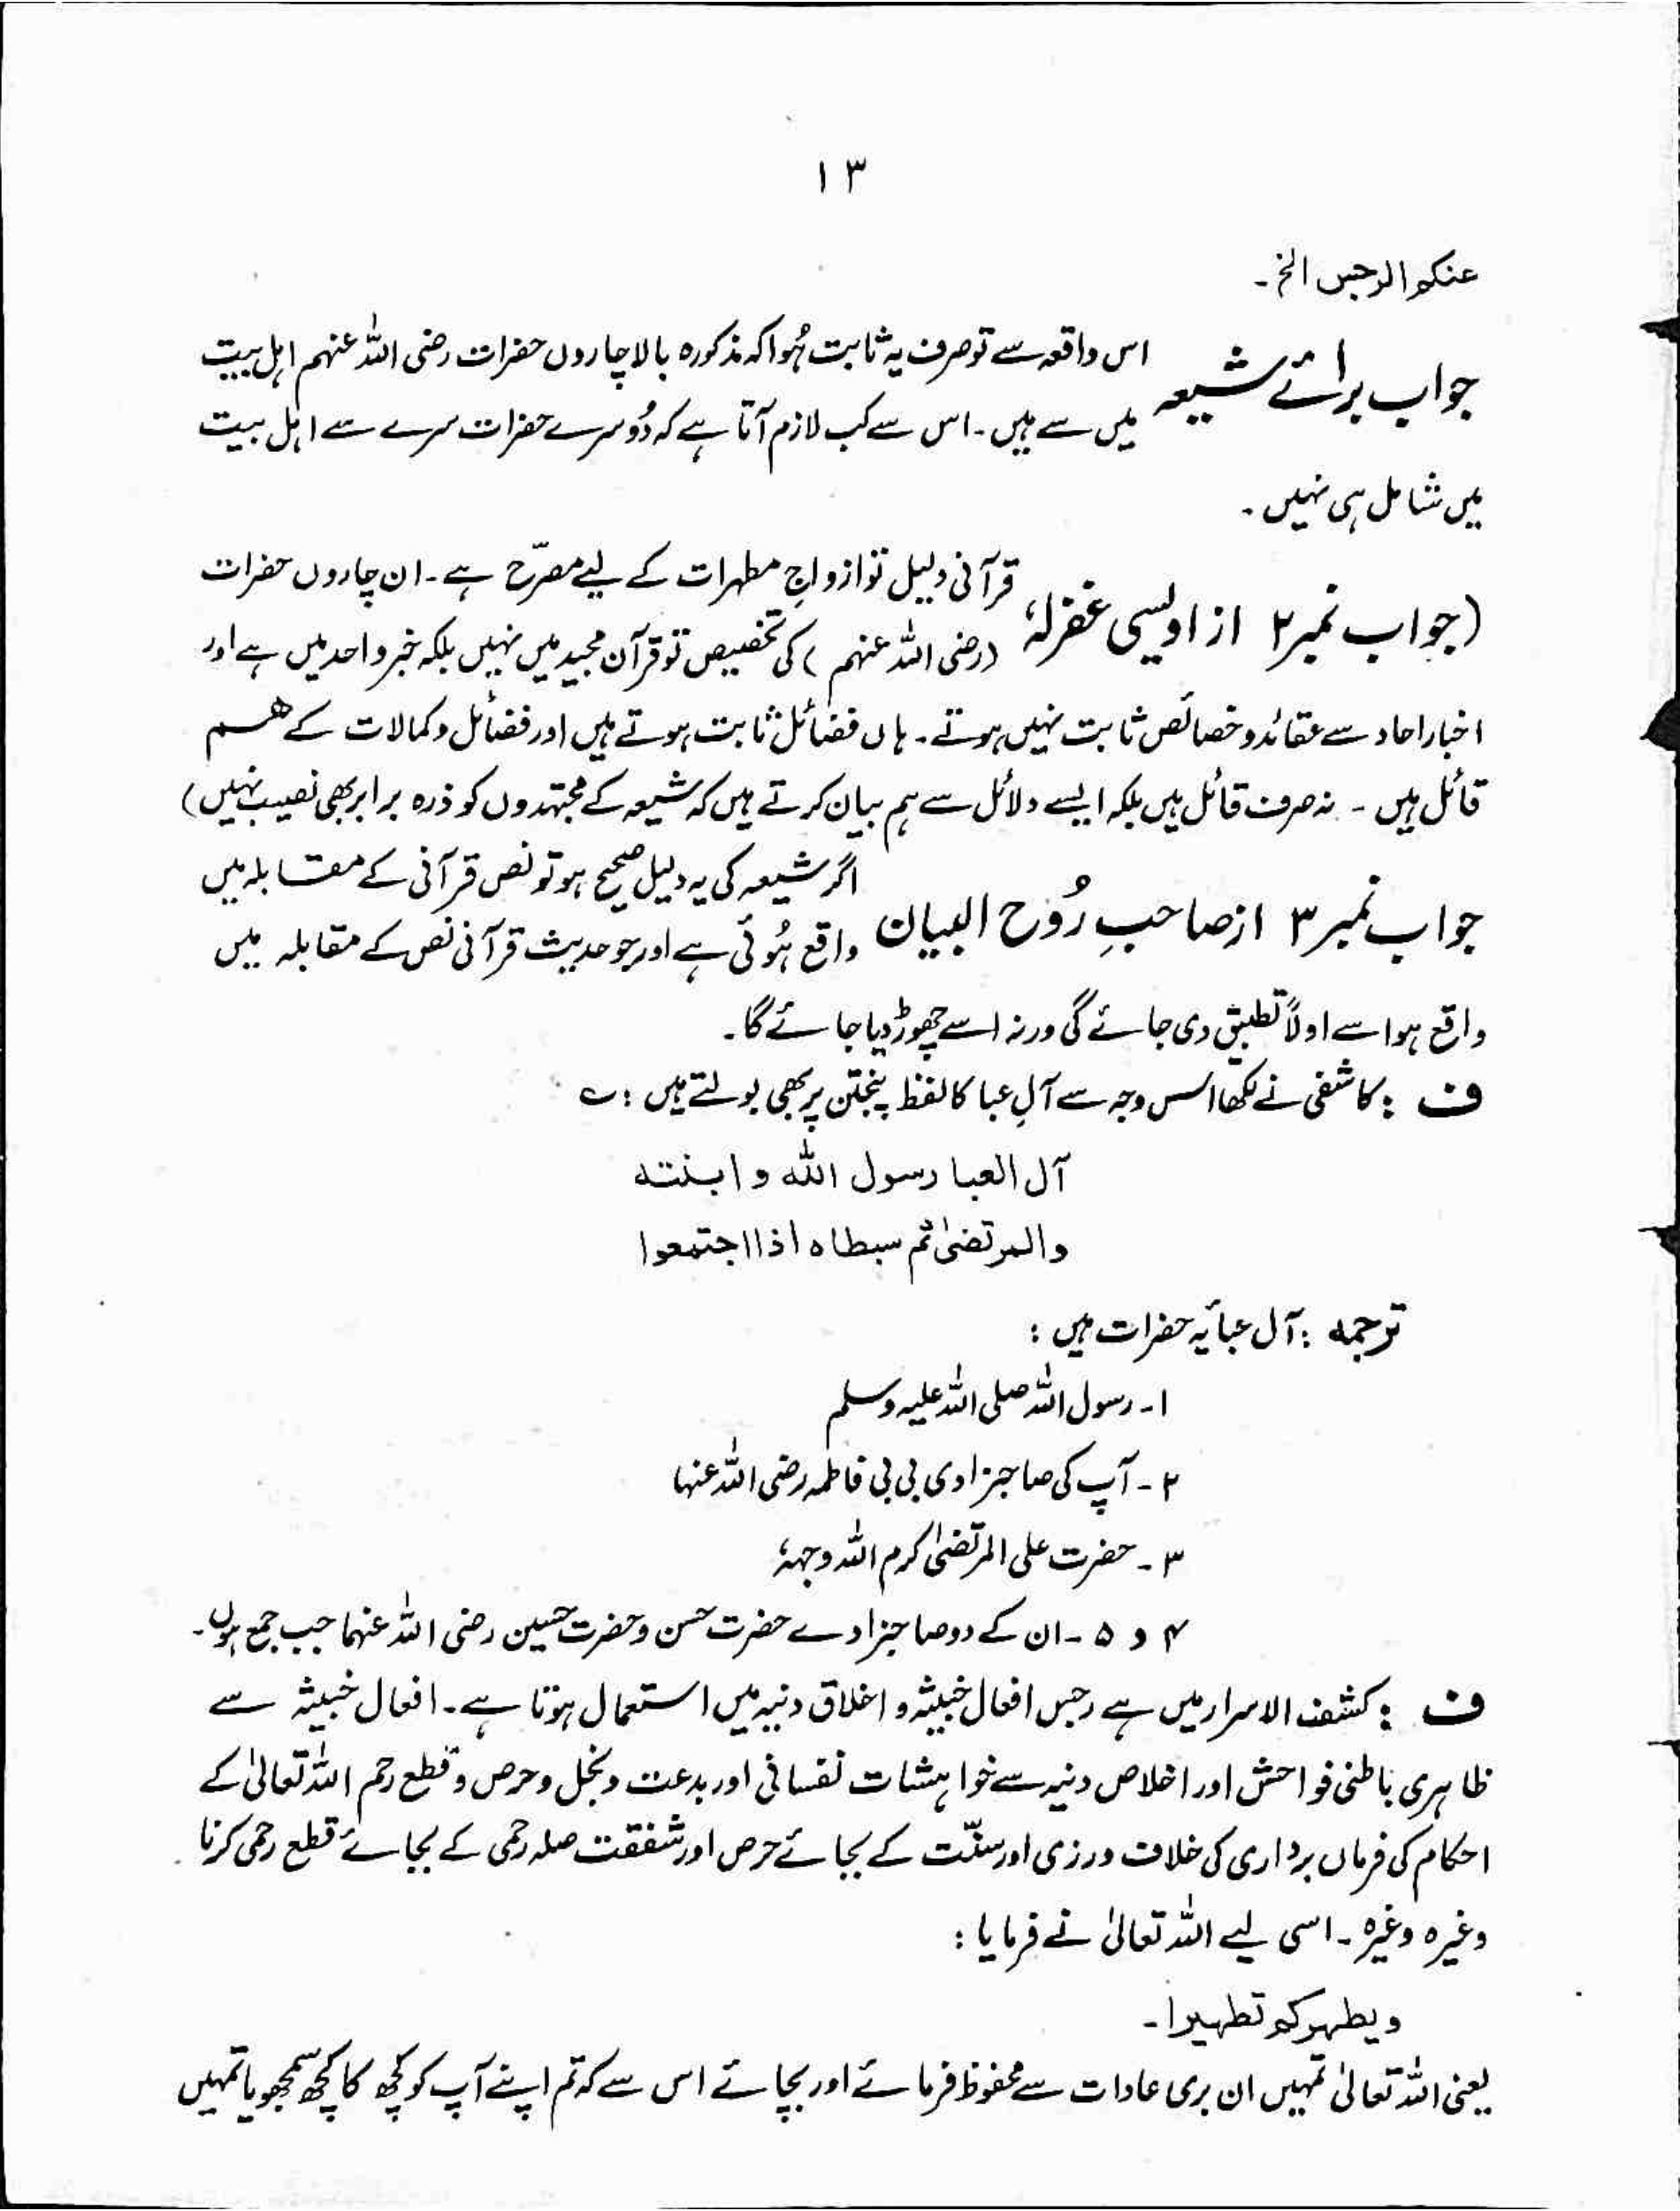 ۱۳
عنکم الرجس الخ۔
جواب برائے شیعہ اس واقعہ سے تو صرف یہ ثابت ہُوا کہ مذکورہ بالا چاروں حضرات رضی اللہ عنہم اہل بیت
میں سے ہیں۔ اس سے کب لازم آتا ہے کہ دُوسرے حضرات سرے سے اہل بیت
میں شامل ہی نہیں۔
(جواب نمبر ۲ از اویسی غفرلہٗ قرآنی دلیل تو ازواجِ مطہرات کے لیے مصرّح ہے۔ ان چاروں حضرات
(رضی اللہ عنہم) کی تخصیص تو قرآن مجید میں نہیں بلکہ خبر واحد میں ہے اور
اخبار احاد سے عقائد و خصائص ثابت نہیں ہوتے۔ ہاں فضائل ثابت ہوتے ہیں اور فضائل و کمالات کے ہم
قائل ہیں۔ نہ صرف قائل ہیں بلکہ ایسے دلائل سے ہم بیان کرتے ہیں کہ شیعہ کے مجتہدوں کو ذرہ برابر بھی نصیب نہیں)
جواب نمبر ۳ از صاحبِ رُوح البیان اگر شیعہ کی یہ دلیل صحیح ہو تو نص قرآنی کے مقابلہ میں
واقع ہُوئی ہے اور جو حدیث قرآنی نص کے مقابلہ میں
واقع ہو اسے اولاً تطبیق دی جائے گی ورنہ اسے چھوڑ دیا جائے گا۔
ف : کاشفی نے لکھا اس وجہ سے آلِ عبا کا لفظ پنجتن پر بھی بولتے ہیں : ؎
آل العبا رسول اللہ و ابنتہ
والمرتضیٰ ثم سبطاہ اذا اجتمعوا
ترجمہ : آل عبا یہ حضرات ہیں :
۱۔ رسول اللہ صلی اللہ علیہ وسلم
۲۔ آپ کی صاحبزادی بی بی فاطمہ رضی اللہ عنہا
۳۔ حضرت علی المرتضیٰ کرم اللہ وجہہٗ
۴ و ۵۔ ان کے دو صاحبزادے حضرت حسن و حضرت حسین رضی اللہ عنہما جب جمع ہوں۔
ف : کشف الاسرار میں ہے رجس افعال خبیثہ و اخلاق دنیہ میں استعمال ہوتا ہے۔ افعال خبیثہ سے
ظاہری باطنی فواحش اور اخلاص دنیہ سے خواہشات نفسانی اور بدعت و بخل و حرص و قطع رحم اللہ تعالیٰ کے
احکام کی فرماں برداری کی خلاف ورزی اور سنّت کے بجائے حرص اور شفقت صلہ رحمی کے بجائے قطع رحمی کرنا
وغیرہ وغیرہ۔ اسی لیے اللہ تعالیٰ نے فرمایا :
ویطہرکم تطہیرا۔
یعنی اللہ تعالیٰ تمہیں ان بری عادات سے محفوظ فرمائے اور بچائے اس سے کہ تم اپنے آپ کو کچھ کا کچھ سمجھو یا تمہیں